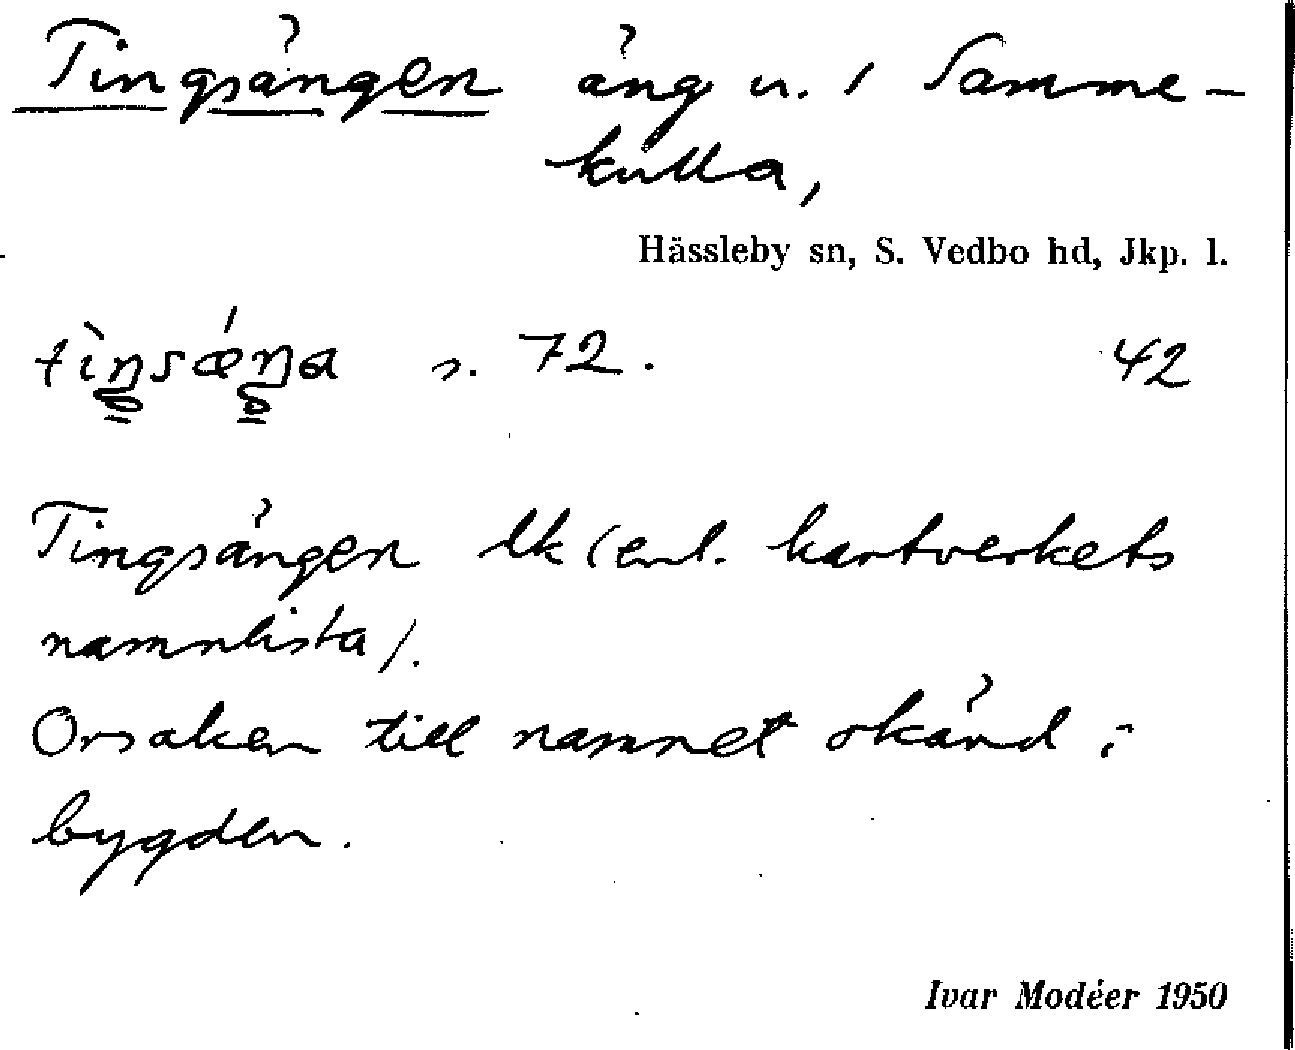 Tingsängen äng u. 1 Samme-
kulla,
Hässleby sn, S. Vedbo hd, Jkp. l.
tìŋsǽŋa s. 72. 42
Tingsängen Ek (enl. kartverkets
namnlista).
Orsaken till namnet okänd i
bygden.
Ivar Modéer 1950